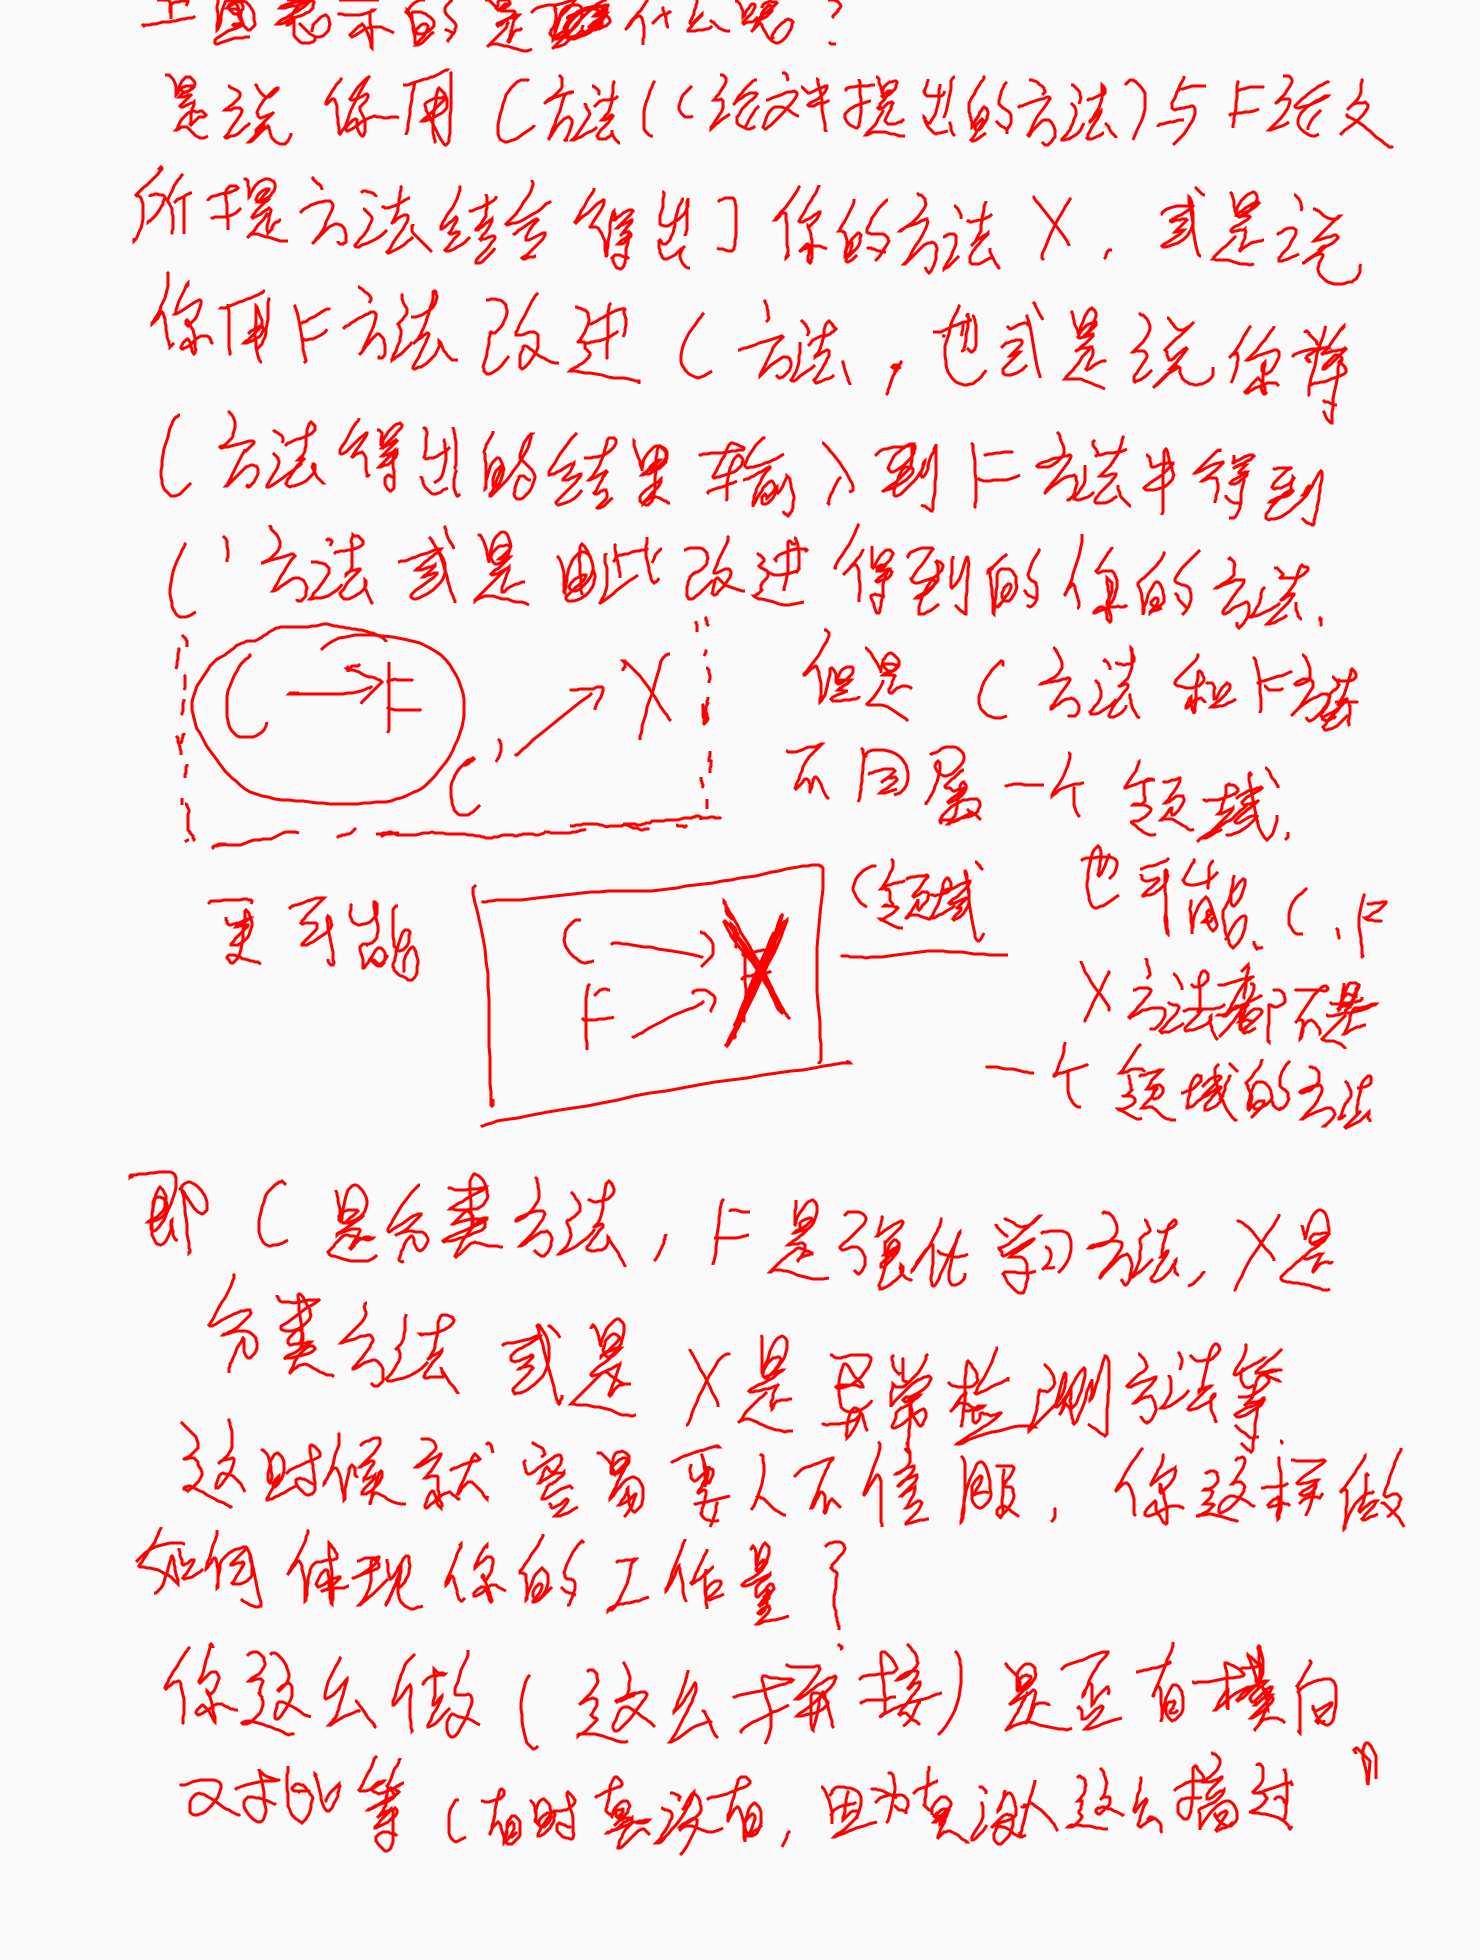 上图表示的是什么呢?
是说 你用 C方法(C论文中提出的方法)与F论文
所提方法结合 得出了你的方法 X. 或是说
你用F方法改进 C 方法, 也或是说你将
C方法得出的结果 输入到F方法中得到
C'方法或是由此改进得到的你的方法.
C → F
C' → X
但是 C方法和F方法
不同属一个领域.
更可能
C →
F → X
C领域
也可能. C, F
X方法都不是
一个领域的方法
即 C是分类方法, F是强化学习方法, X是
分类方法 或是 X是异常检测方法等
这时候就容易要人不信服, 你这样做
如何体现你的工作量?
你这么做(这么拼接)是否有横向
对比等(有时真没有, 因为真没人这么搞过